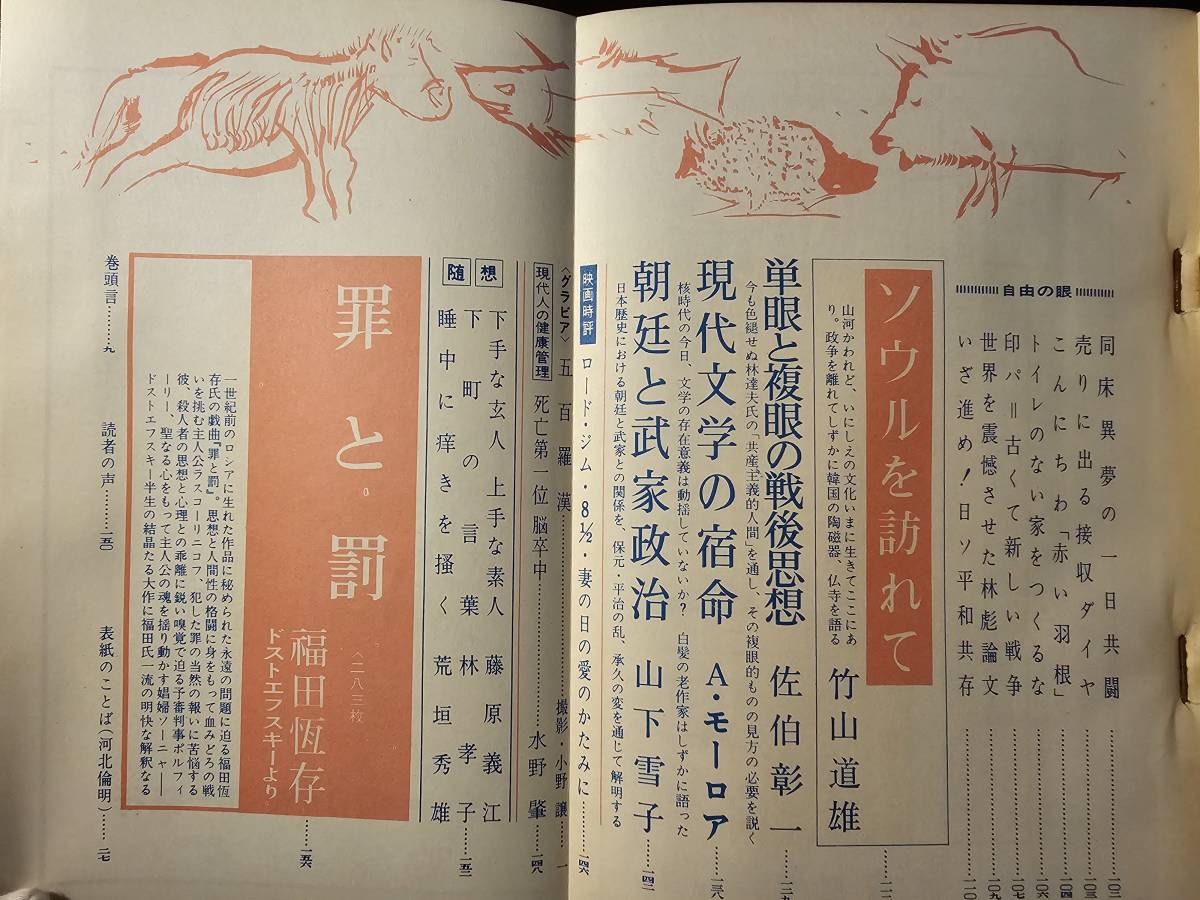 自由の眼
同床異夢の一日共闘……一〇二
売りに出る接収ダイヤ……一〇三
こんにちわ「赤い羽根」……一〇四
トイレのない家をつくるな……一〇六
印パ＝古くて新しい戦争……一〇七
世界を震憾させた林彪論文……一〇九
いざ進め！日ソ平和共存……一一〇
ソウルを訪れて
山河かわれど、いにしえの文化いまに生きてここにあ
り。政争を離れてしずかに韓国の陶磁器、仏寺を語る
竹山道雄
単眼と複眼の戦後思想 佐伯彰一
今も色褪せぬ林達夫氏の「共産主義的人間」を通し、その複眼的ものの見方の必要を説く
現代文学の宿命 A・モーロア……一三八
核時代の今日、文学の存在意義は動揺していないか？ 白髪の老作家はしずかに語った
朝廷と武家政治 山下雪子……一四二
日本歴史における朝廷と武家との関係を、保元・平治の乱、承久の変を通じて解明する
映画時評 ロード・ジム・8½・妻の日の愛のかたみに……一四六
〈グラビア〉五百羅漢……撮影・小野譲 一
現代人の健康管理 死亡第一位 脳卒中……水野肇……一四八
随想
下手な玄人 上手な素人 藤原義江
下町の言葉 林孝子……一五二
睡中に痒きを掻く 荒垣秀雄
罪と罰
〈二八三枚〉
福田恆存……一五六
ドストエフスキーより
一世紀前のロシアに生れた作品に秘められた永遠の問題に迫る福田恆
存氏の戯曲『罪と罰』。思想と人間性の格闘に身をもって血みどろの戦
いを挑む主人公ラスコーリニコフ、犯した罪の当然の報いに苦悩する
彼、殺人者の思想と心理との乖離に鋭い嗅覚で迫る予審判事ポルフィ
ーリー、聖なる心をもって主人公の魂を揺り動かす娼婦ソーニャ――
ドストエフスキー半生の結晶たる大作に福田氏一流の明快な解釈なる
巻頭言……九
読者の声……一五〇
表紙のことば（河北倫明）……二七